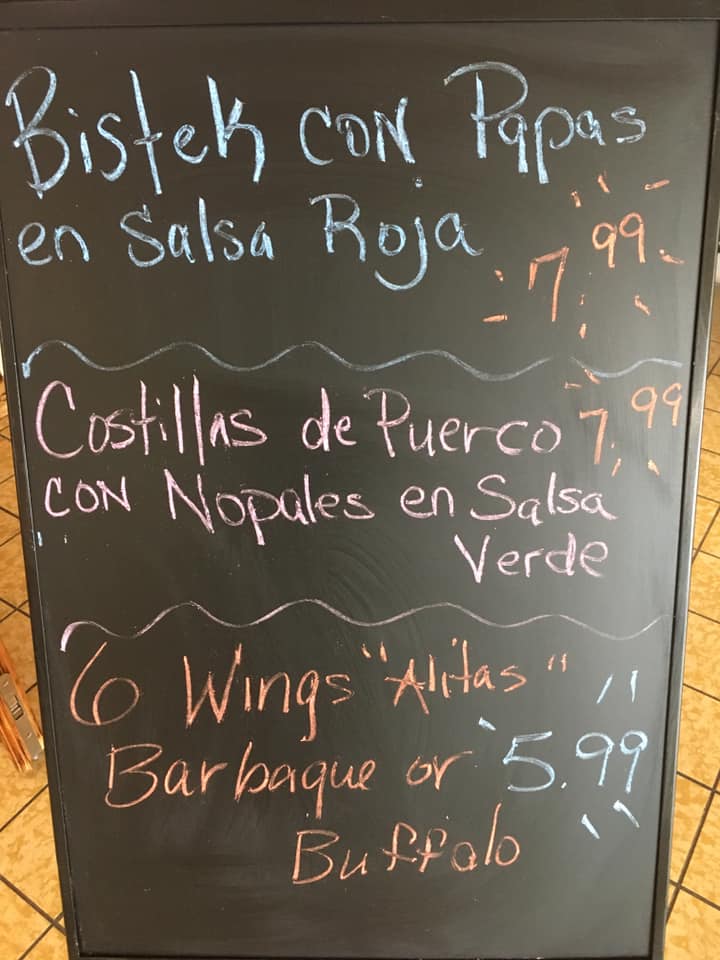 Bistek con Papas
en Salsa Roja
7.99
Costillas de Puerco 7.99
con Nopales en Salsa
Verde
6 Wings "Alitas"
Barbaque or 5.99
Buffalo